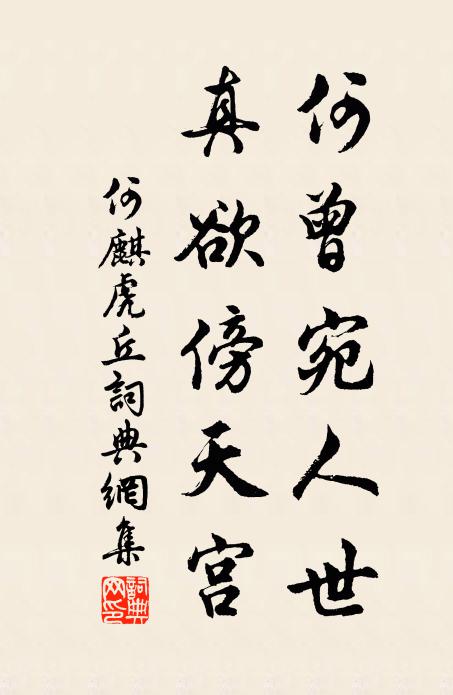 何曾宛人世
真欲傍天宫
何麒虎丘詞典網集
詞典
网印